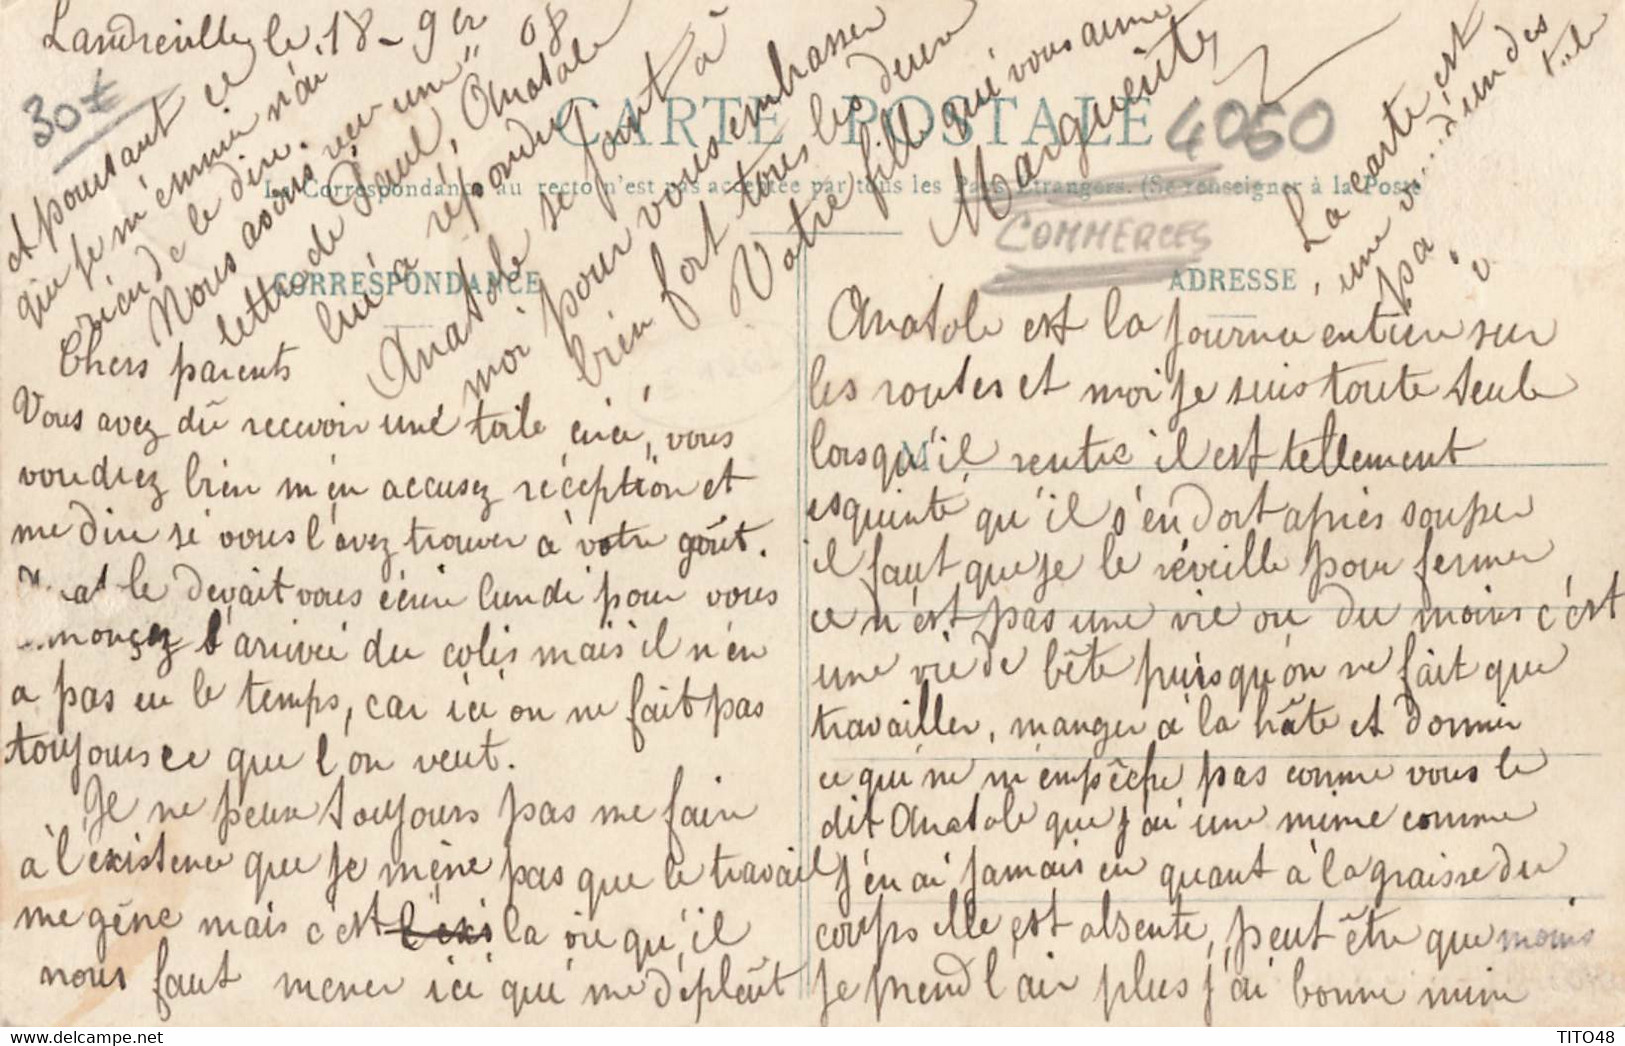 Landreville le 18-9br 08
30
CARTE POSTALE
4050
La Correspondance au recto n'est pas acceptée par tous les Pays Etrangers. (Se renseigner à la Poste
COMMERCES
CORRESPONDANCE
ADRESSE
Chers parents
Vous avez dû recevoir une toile cirée, vous
voudrez bien m'en accusez réception et
me dire si vous l'avez trouver à votre goût.
le devait vous écrire lundi pour vous
l'arrivée du colis mais il n'en
a pas eu le temps, car ici on ne fait pas
toujours ce que l'on veut.
Je ne peux toujours pas me faire
à l'existence que je mène pas que le travail
me gêne mais c'est la vie qu'il
nous faut mener ici qui me déplaît
Anatole est la journée entière sur
les routes et moi je suis toute seule
lorsqu'il rentre il est tellement
esquinté qu'il s'endort après souper
il faut que je le réveille pour fermer
ce n'est pas une vie ou du moins c'est
une vie de bête puisqu'on ne fait que
travailler, manger à la hâte et dormir
ce qui ne m'empêche pas comme vous le
dit Anatole que j'ai une mine comme
j'en ai jamais eu quant à la graisse du
corps elle est absente, peut être que moins
je prend l'air plus j'ai bonne mine
et pourtant ce
que je m'ennuie n'ai
rien de le dire.
Nous avons reçu une
lettre de Paul, Anatole
lui a répondu
Anatole se joint à
moi pour vous embrasser
bien fort tous les deux
Votre fille qui vous aime
Marguerite
La carte est
une d'un des
pa